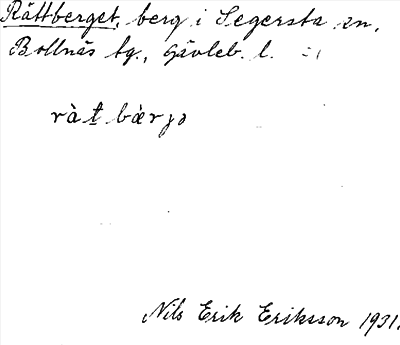 Rättberget, berg i Segersta sn,
Bollnäs tg., Gävleb. l.
ràt bærjə
Nils Erik Eriksson 1931.